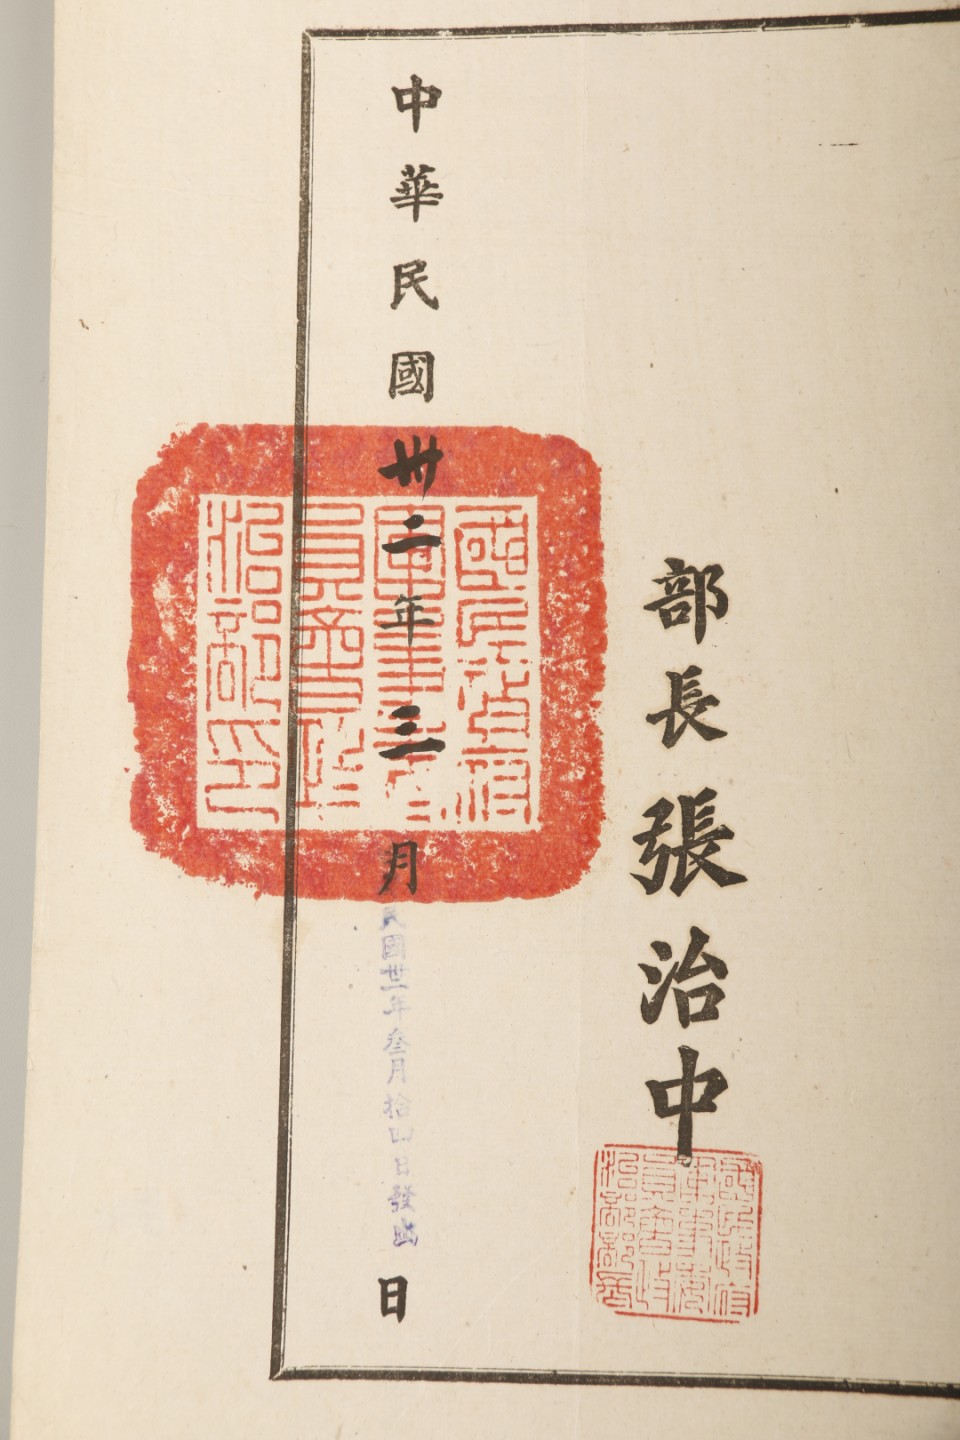 部長張治中
國民政府
軍事委
員會政
中華民國卅二年三月日
民國卅二年叁月拾四日發
國民政府
軍事委
員會政
治部印